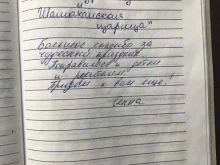 "Шамаханская
царица"
Большое спасибо за
чудесный праздник!
Понравилось и детям
и родителям!
Придём к вам ещё!
Анна